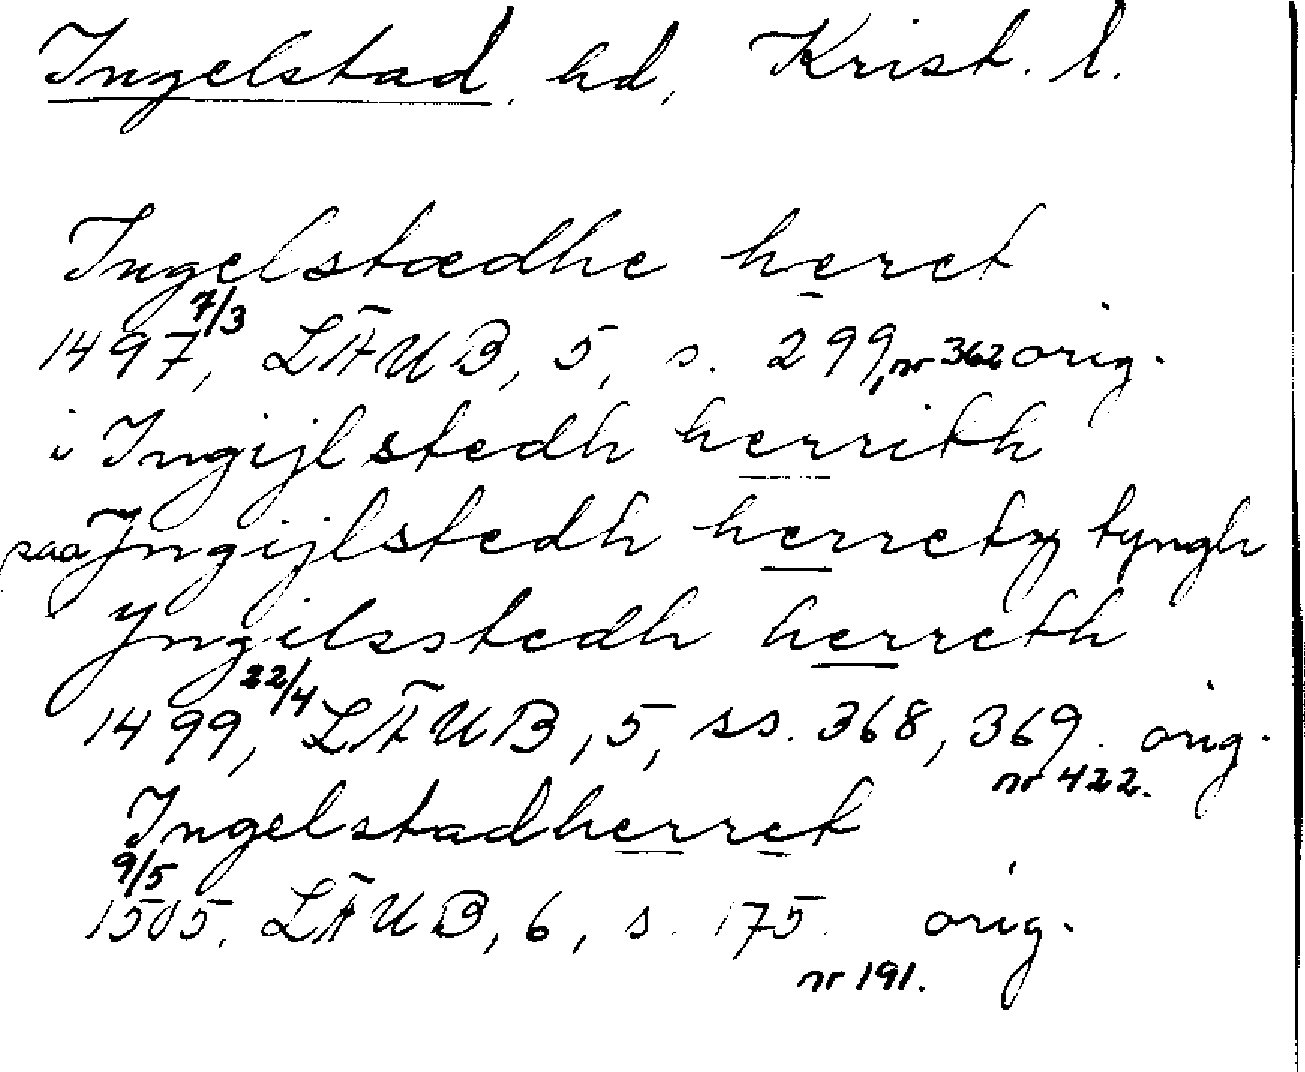 Ingelstad hd, Krist. l.
Ingelstædhe heret
1497 7/3, LÄUB, 5, s. 299, nr 362 orig.
i Ingijlstedh herrith
paa Jngijlstedh herretz tyngh
Jngilsstedh herreth
1499, 22/4 LÄUB, 5, ss. 368, 369. orig.
nr 422.
Ingelstadherret
9/5
1505. LÄUB, 6, s. 175. orig.
nr 191.